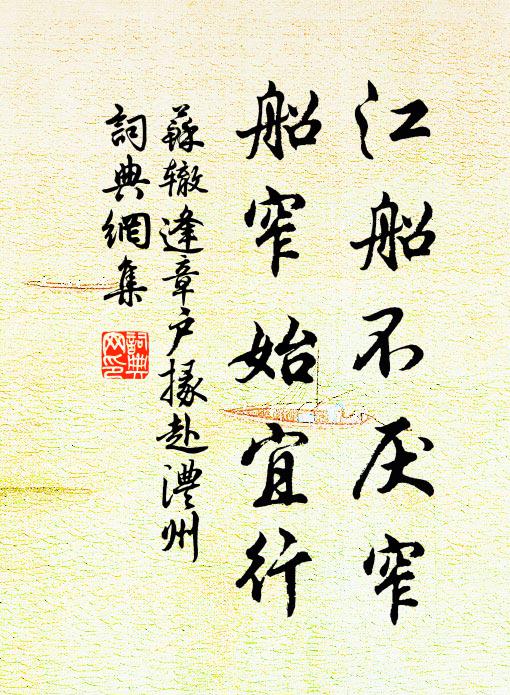 江船不厌窄
船窄始宜行
蘇辙逢章户掾赴澧州
詞典網集
詞典网印